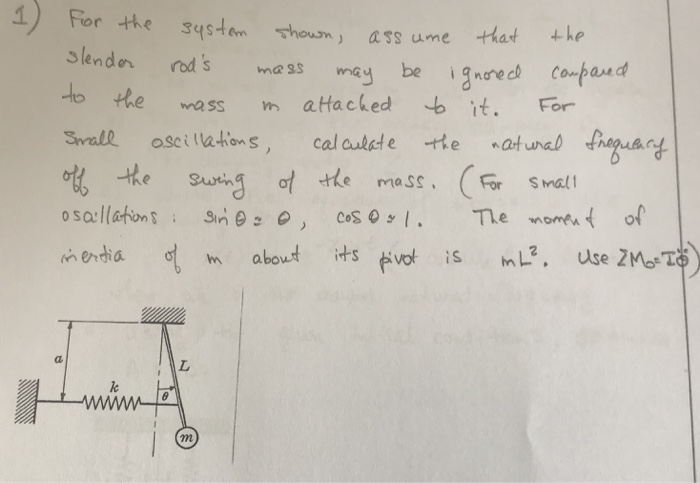 1) For the system shown, assume that the
slender rod's mass may be ignored compared
to the mass m attached to it. For
small oscillations, calculate the natural frequency
off the swing of the mass. (For small
osallations: sin θ ≈ θ, cos θ ≈ 1. The moment of
inertia of m about its pivot is mL². Use ΣM₀=Iθ̈)
a
L
k
θ
m